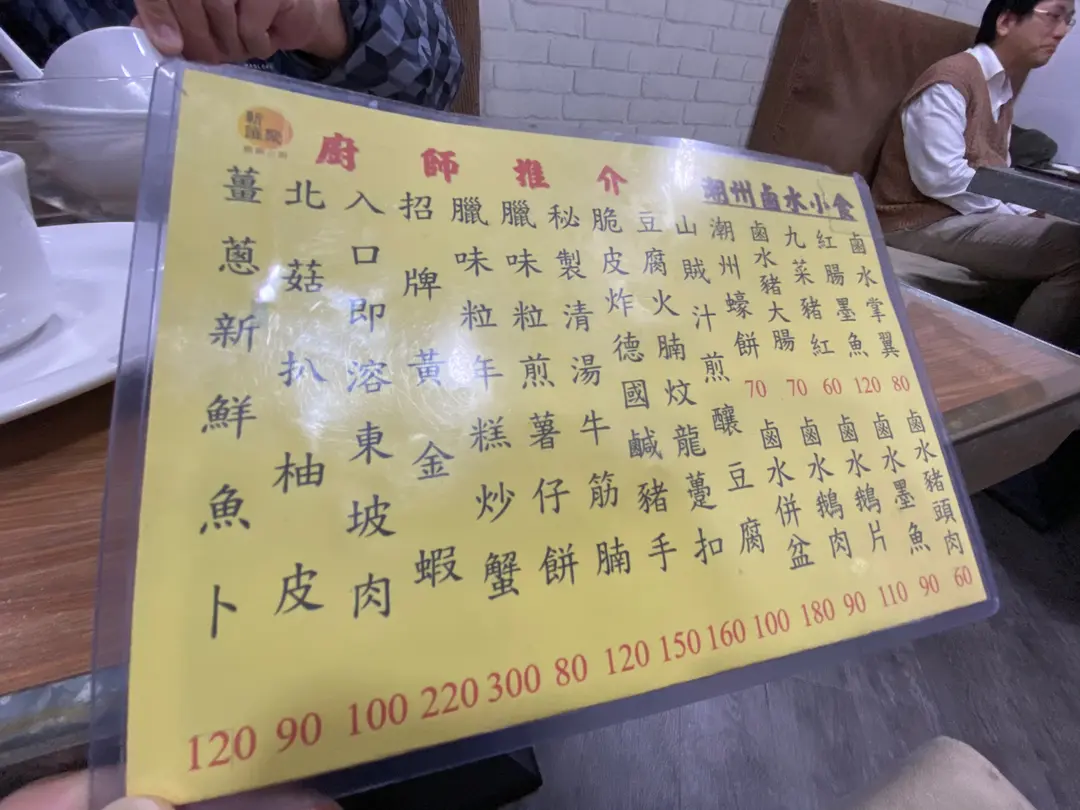 廚師推介
薑蔥新鮮魚卜 120
北菇扒柚皮 90
入口即溶東坡肉 100
招牌黃金蝦 220
臘味粒年糕炒蟹 300
臘味粒煎薯仔餅 80
秘製清湯牛筋腩 120
脆皮炸德國鹹豬手 150
豆腐火腩炆龍躉扣 160
山賊汁煎釀豆腐 100
潮州鹵水小食
潮州蠔餅 70
鹵水豬大腸 70
九菜豬紅 60
紅腸墨魚 120
鹵水掌翼 80
鹵水併盆 180
鹵水鵝肉 90
鹵水鵝片 110
鹵水墨魚 90
鹵水豬頭肉 60